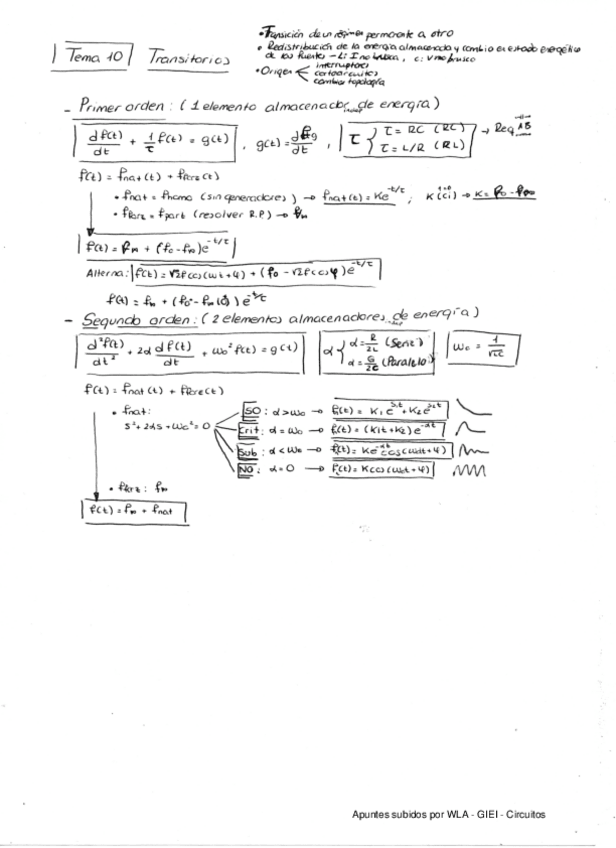 Tema 10 Transitorios
• Transición de un régimen permanente a otro
• Redistribución de la energía almacenada y cambio en estado energético
de las fuentes - L: I no brusca, C: V no brusco
• Origen < interruptores
cortocircuitos
cambio topología
- Primer orden: (1 elemento almacenador de energía)
df(t)/dt + 1/τ f(t) = g(t) , g(t) = , τ { τ = RC (RC) → Req AB
τ = L/R (RL)
f(t) = fnat(t) + fforz(t)
• fnat = fhomo (sin generadores) → fnat(t) = Ke^-t/τ ; K (ci) t=0 → K = f0 - f∞
• fforz = fpart (resolver R.P) → f∞
f(t) = f∞ + (f0 - f∞)e^-t/τ
Alterna: f(t) = √2 F cos(ωt+φ) + (f0 - √2 F cos φ)e^-t/τ
f(t) = f∞ + (f0 - f∞(0))e^-t/τ
- Segundo orden: (2 elementos almacenadores de energía)
d²f(t)/dt² + 2α df(t)/dt + ω0² f(t) = g(t) α { α = R/2L (Serie) ω0 = 1/√LC
α = G/2C (Paralelo)
f(t) = fnat(t) + fforz(t)
• fnat:
s² + 2αs + ω0² = 0
SO: α > ω0 → f(t) = K1 e^s1t + K2 e^s2t
Crit: α = ω0 → f(t) = (K1t + K2) e^-αt
Sub: α < ω0 → f(t) = Ke^-αt cos(ωdt + φ)
NO: α = 0 → f(t) = K cos(ωdt + φ)
• fforz: f∞
f(t) = f∞ + fnat
Apuntes subidos por WLA - GIEI - Circuitos